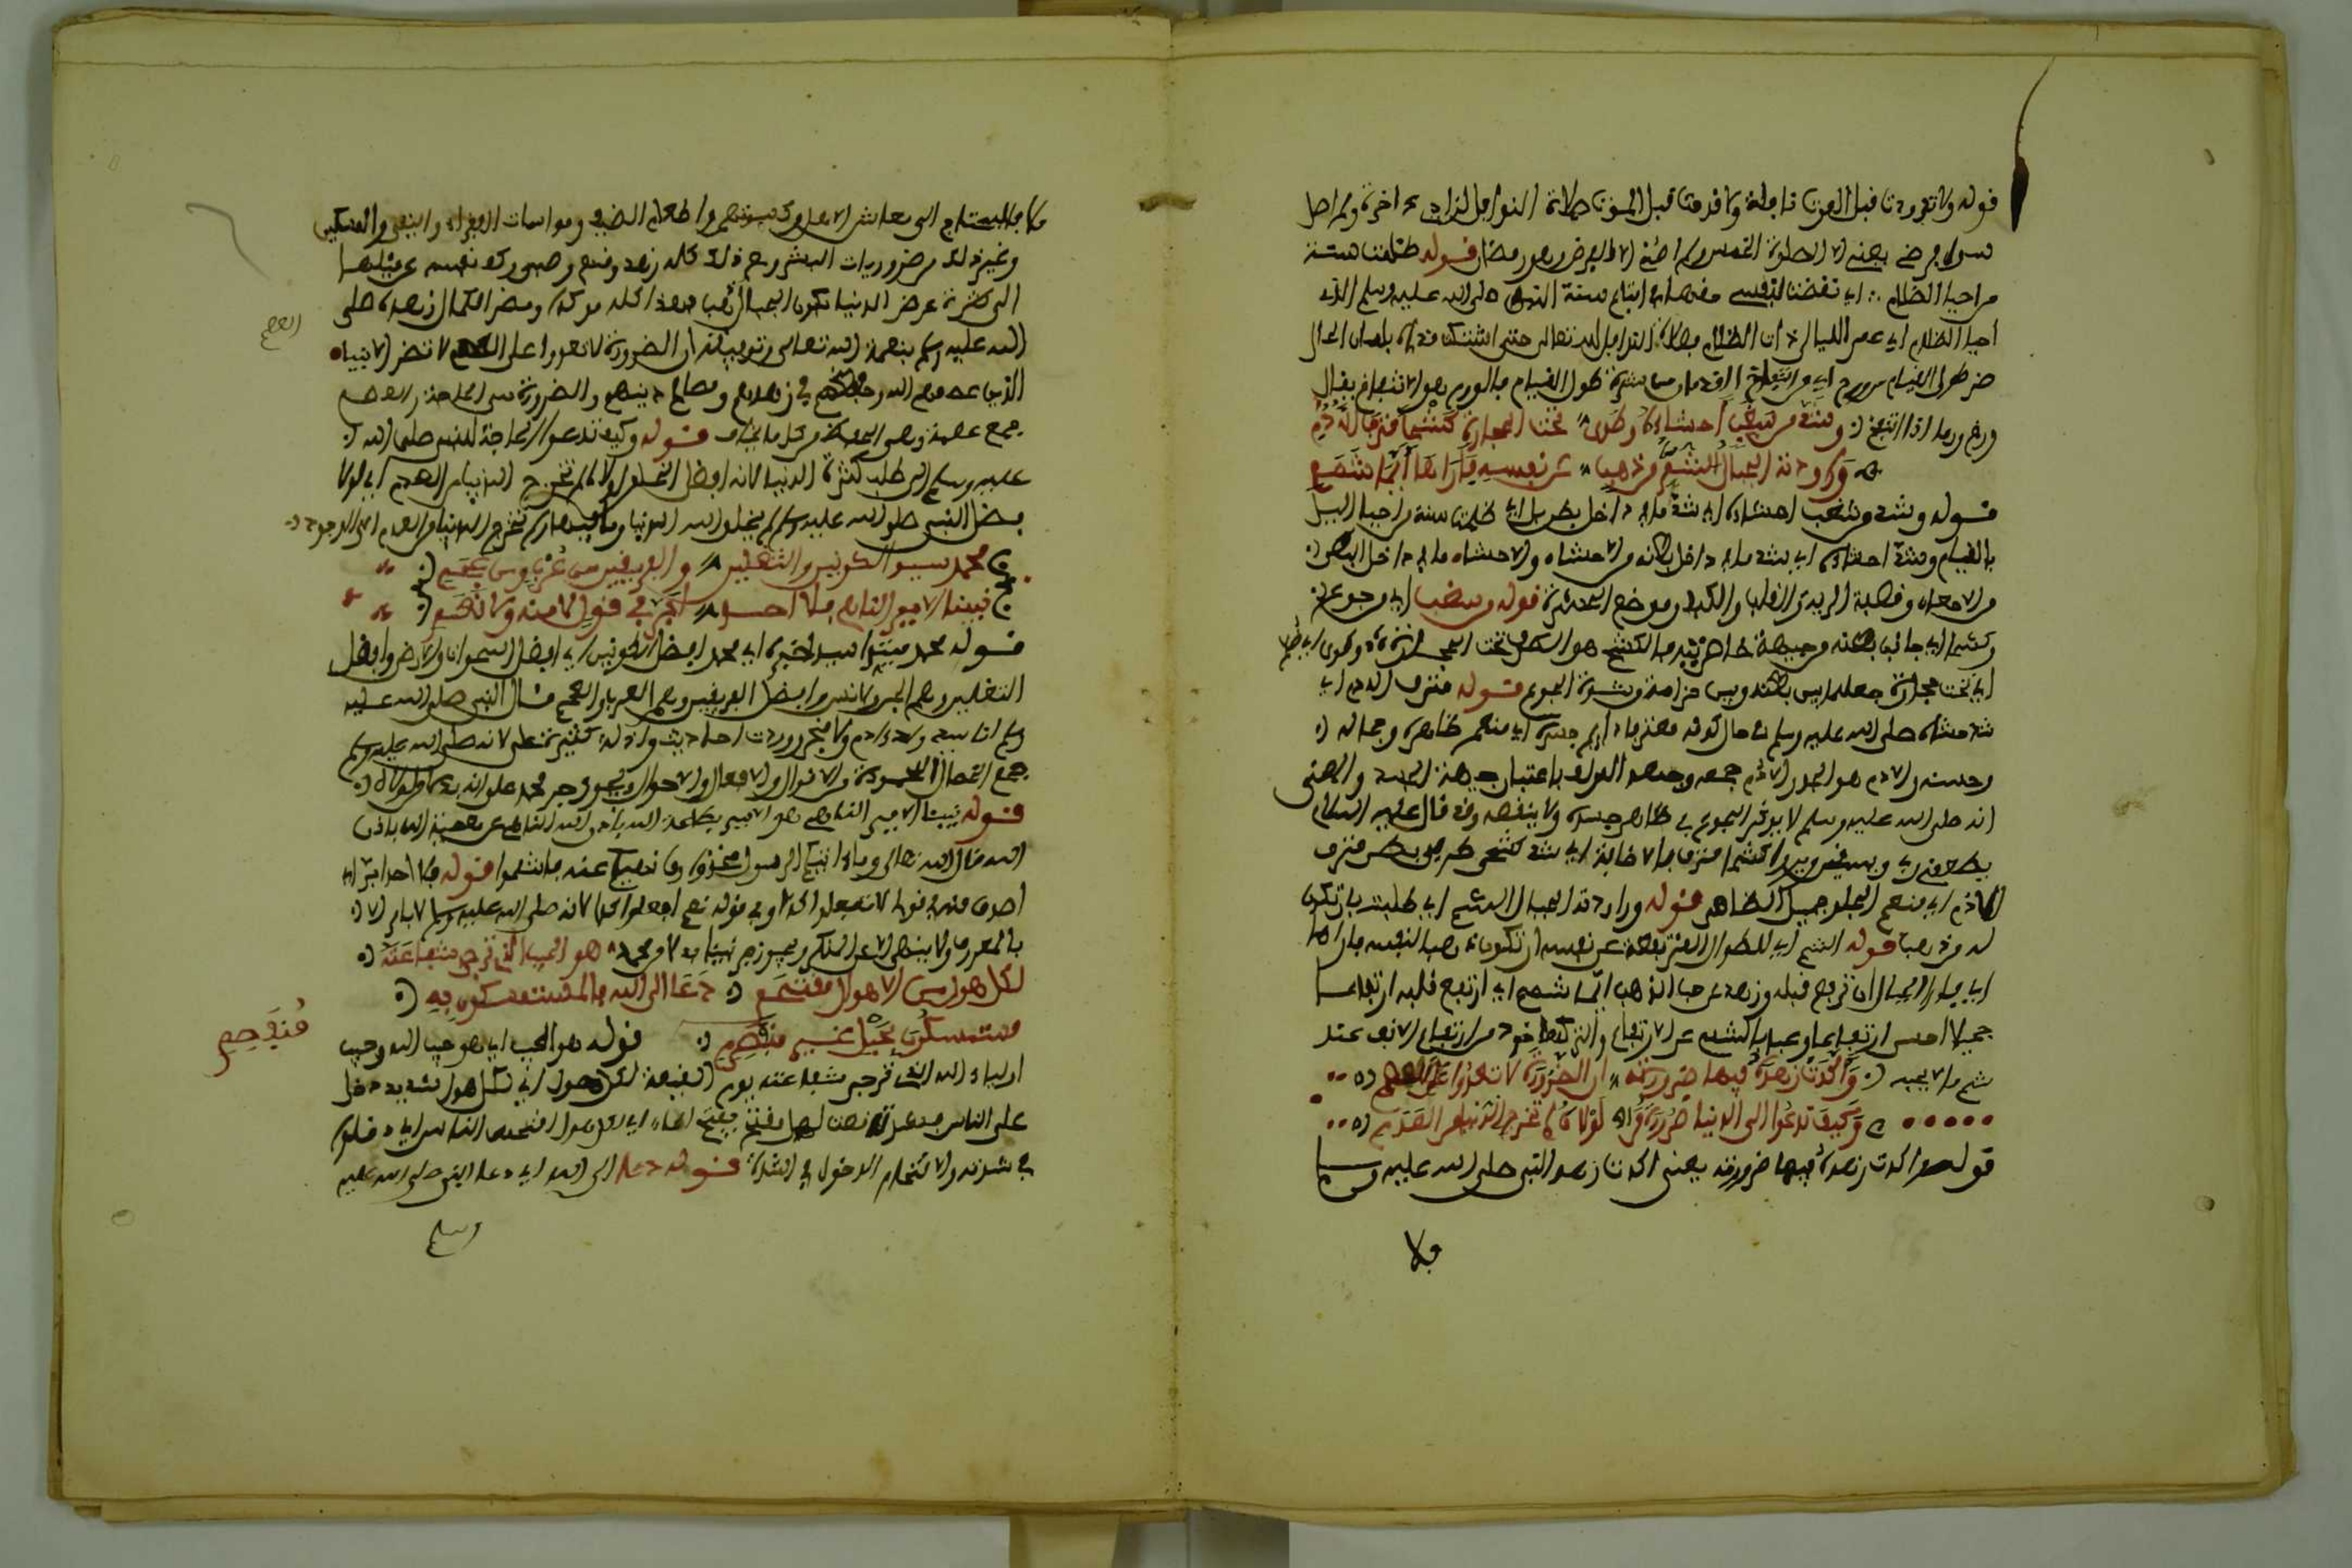 قوله ولا تزودت قبل الموت نافلة ولا قدمت قبل الموت صلاة النوافل لزاد اخرة ولم اصل
سوى فرض يعني الا الصلوة الخمس ولم اصم الا فرض وهو رمضان قوله ظلمت سنة
من احيا الظلام اي نقضت لنفسي حقها في اتباع سنة النبي صلى الله عليه وسلم الذي
احيا الظلام اي عمر الليالي ذات الظلام بصلاة النوافل لله تعالى حتى اشتكت قدماه بلسان الحال
ضر طول القيام من ورم اي من انتفاخ القدمين من شدة طول القيام فالورم هو الانتفاخ يقال
ورم ورما اذا انتفخ وشد من سغب احشاءه وطوى تحت الحجارة كشحا مترف الادم
وراودته الجبال الشم من ذهب عن نفسه فاراها ايما شمم
قوله وشد من سغب احشاءه اي شد ما في داخل بطنه اي ظلمت سنة من احيا الليل
بالقيام وشد احشاءه اي شد ما في داخل بطنه من الاحشاء والاحشاء ما في داخل البطن
من الامعاء وقصبة الرية والقلب والكبد وموضع قوله من سغب اي من جوع
وكشحا اي جانب بطنه من جهة خاصرتيه فالكشح هو تحت الحجارة وطوى
اي تحت حجارة جعلها بين بطنه وبين حزامه من شدة الجوع قوله مترف الادم اي
شد حشاه صلى الله عليه وسلم في حال كونه مترف الادم جسده اي منعم ظاهره وجماله
وحسنه والادم هو الجلد والادم جمعه وجمعه باعتبار جهة الجسد والمعنى
انه صلى الله عليه وسلم لا يؤثر الجوع في ظاهر جسده ولا ينقصه وقد قال عليه السلام
يطعمني ربي ويسقيني كشحا مترف بالاضافة اي شد كشحي بطن مترف
الادم اي منعم الجلد جميل الظاهر قوله وراودته الجبال الشم اي طلبت بان تكون
له ذهبا قوله الشم اي الطوال المرتفعة عن نفسه ان تكون ذهبا لنفسه فاراها
اي فارا الجبال ان ترفع قلبه وزهده عن حب الذهب ايما شمم اي ارتفع قلبه ارتفاعا
جميلا احسن ارتفاع وعبر بالشمم عن الارتفاع ماخوذ من ارتفاع الانف عند
شم ما لا يحبه واكدت زهده فيها ضرورته ان الضرورة لا تعدوا على العصم
وكيف تدعوا الى الدنيا ضرورة من لولاه لم تخرج الدنيا من العدم
قوله واكدت زهده فيها ضرورته يعني اكدت زهد النبي صلى الله عليه وسلم
فلا
فلا محتاج الى معاش الاهل وكسوتهم واطعام الضيف ومواسات الفقراء واليتامى والمسكين
وغير ذلك من ضروريات البشر ومع ذلك كله زهد وقنع وصبر وكف نفسه عن ميلها
الى كثرة عرض الدنيا بكون الجبال ذهبا فهذا كله مؤكد ومضر لكمال زهده صلى
الله عليه وسلم بنعمة الله تعالى وتوفيقه ان الضرورة لا تعدوا على العصم لا تضر الانبياء
العصم
الذين عصمهم الله وحفظهم في زهدهم ومصالح دينهم والضرورة هي الحاجة والعصم
جمع عصمة وهي الحفظ من كل ما يخاف قوله وكيف تدعوا الحاجة للنبي صلى الله
عليه وسلم الى طلب كثرة الدنيا لانه افضل الخلق لولاه لم تخرج الدنيا من العدم اي لولا
فضل النبي صلى الله عليه وسلم لم يخلق الله الدنيا وما فيها ولم تخرج الدنيا من العدم الى الوجود
محمد سيد الكونين والثقلين والفريقين من عرب ومن عجم
نبينا الامر الناهي فلا احد ابر في قول لا منه ولا نعم
قوله محمد مبتدا سيد خبره اي محمد افضل الكونين اي افضل السموات والارض وافضل
الثقلين وهم الجن والانس وافضل الفريقين وهم العرب والعجم قال النبي صلى الله عليه
وسلم انا سيد ولد ادم ولا فخر ووردت احاديث وادلة كثيرة على ذلك لانه صلى الله عليه وسلم
جمع الخصال المحمودة من الاقوال والافعال والاحوال ويجوز جر محمد على انه بدل
قوله نبينا الامر الناهي هو الامر بطاعة الله والناهي عن معصية الله باذن
الله قال الله تعالى وما اتيكم الرسول فخذوه وما نهيكم عنه فانتهوا قوله فلا احد ابر اي
اصدق منه في قول لا تفعلوا كذا وفي قوله نعم افعلوا كذا لانه صلى الله عليه وسلم لا يامر الا
بالمعروف ولا ينهى الا عن المنكر ويجوز جر نبينا بدلا من محمد هو الحبيب الذي ترجى شفاعته
لكل هول من الاهوال مقتحم دعا الى الله فالمستمسكون به
مستمسكون بحبل غير منفصم قوله هو الحبيب اي هو حبيب الله وحبيب
مُنفَصِم
اولياء الله الذي ترجى شفاعته يوم القيمة لكل هول اي لكل هول شديد دخل
على الناس مقتحم بفتح الحاء اي لكل هول اقتحمه الناس اي دخلوا
في شدته والاقتحام الدخول في الشدة قوله دعا الى الله اي دعا النبي صلى الله عليه
وسلم